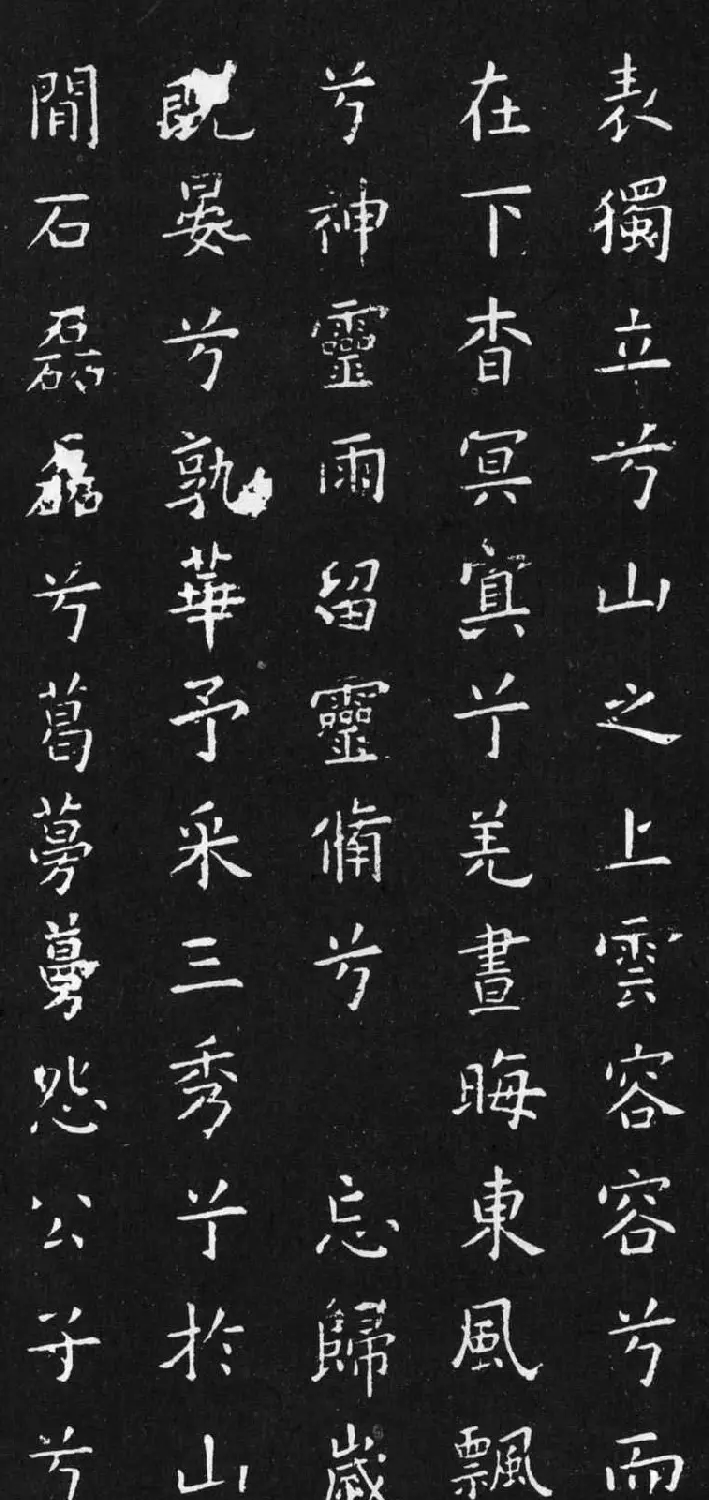 表獨立兮山之上雲容容兮而
在下杳冥冥兮羌晝晦東風飄
兮神靈雨留靈脩兮忘歸歲
既晏兮孰華予采三秀兮於山
閒石磊磊兮葛蔓蔓怨公子兮